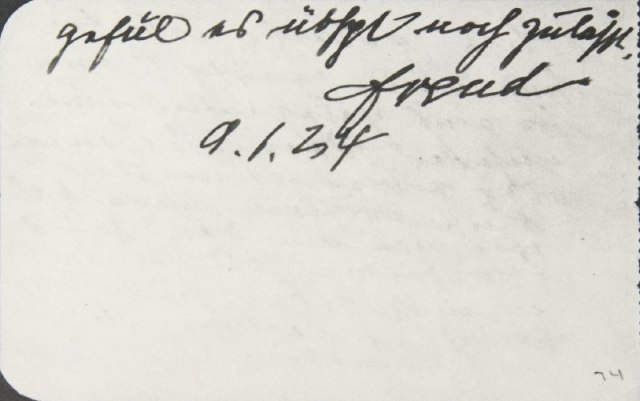 gefül es übhpt noch zuläßt.
Freud
9.1.24
74